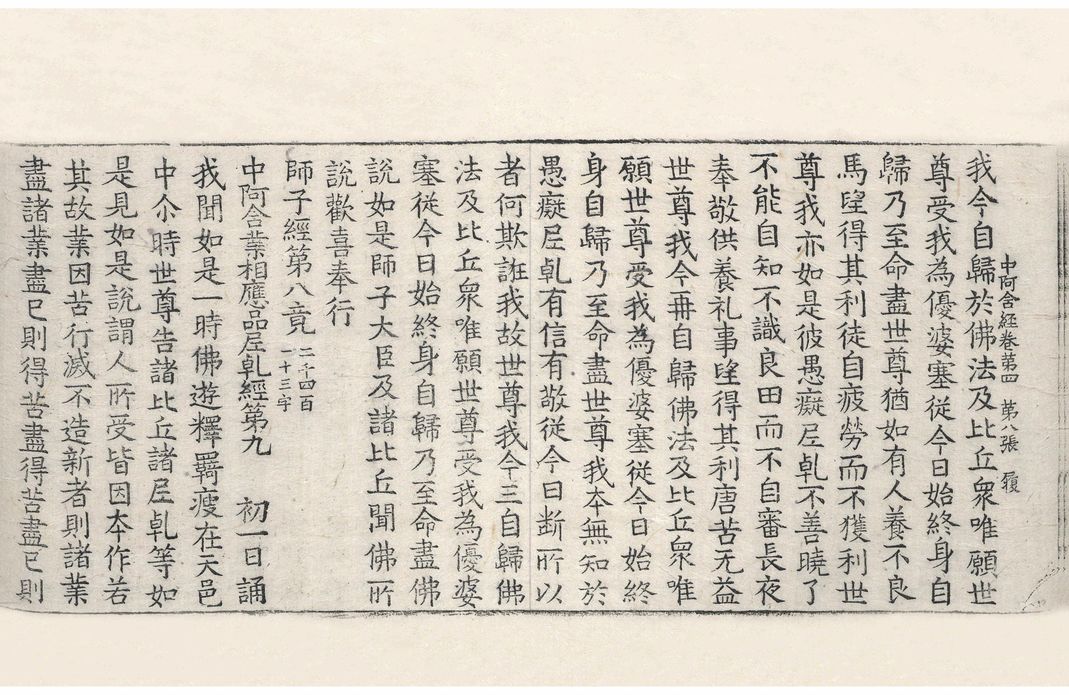 中阿含經卷第四　第八張　履
我今自歸於佛法及比丘衆唯願世
尊受我為優婆塞從今日始終身自
歸乃至命盡世尊猶如有人養不良
馬望得其利徒自疲勞而不獲利世
尊我亦如是彼愚癡尼乹不善曉了
不能自知不識良田而不自審長夜
奉敬供養礼事望得其利唐苦无益
世尊我今再自歸佛法及比丘衆唯
願世尊受我為優婆塞從今日始終
身自歸乃至命盡世尊我本無知於
愚癡尼乹有信有敬從今日断所以
者何欺誑我故世尊我今三自歸佛
法及比丘衆唯願世尊受我為優婆
塞從今日始終身自歸乃至命盡佛
說如是師子大臣及諸比丘聞佛所
說歡喜奉行
師子經第八竟　二千四百
一十三字
中阿含業相應品尼乹經第九　初一日誦
我聞如是一時佛遊釋羇瘦在天邑
中尒時世尊告諸比丘諸尼乹等如
是見如是說謂人所受皆因本作若
其故業因苦行滅不造新者則諸業
盡諸業盡已則得苦盡得苦盡已則